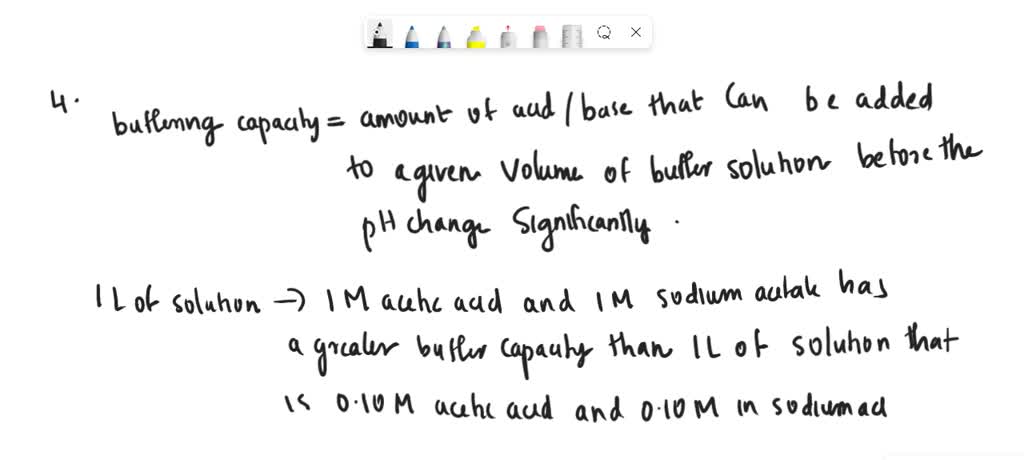 4.
buffering capacity = amount of acid / base that can be added
to a given volume of buffer solution before the
pH change significantly.
1 L of solution → 1 M acetic acid and 1 M sodium acetate has
a greater buffer capacity than 1 L of solution that
is 0.10 M acetic acid and 0.10 M in sodium ace